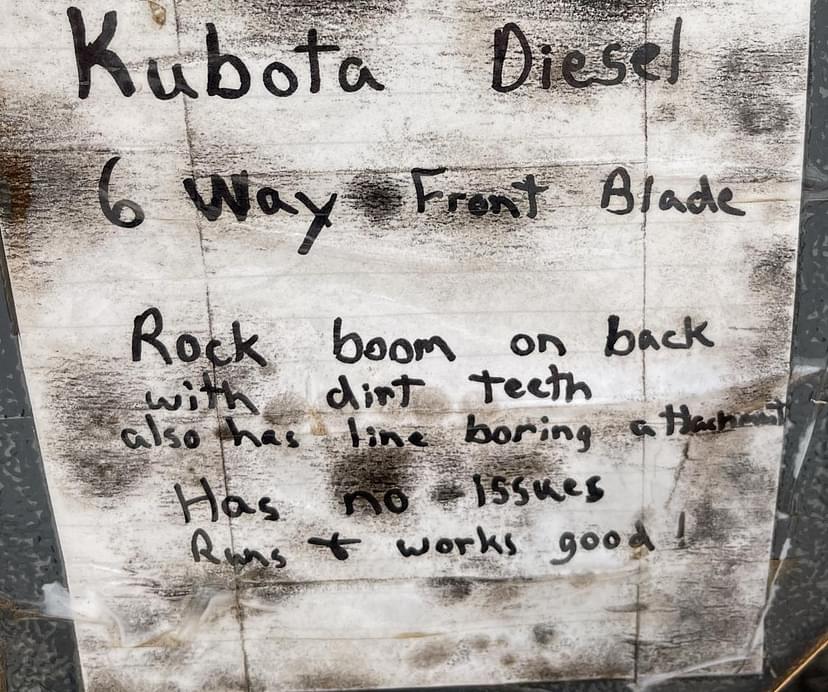 Kubota Diesel
6 Way Front Blade
Rock boom on back
with dirt teeth
also has line boring attachment
Has no Issues
Runs + works good!